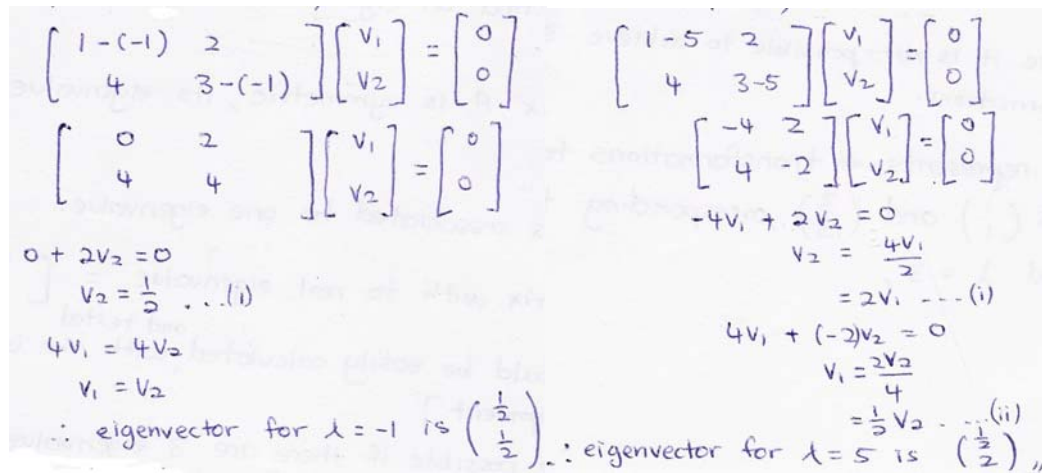 [ 1-(-1) 2 ] [ v₁ ] = [ 0 ]
[ 4 3-(-1) ] [ v₂ ] [ 0 ]
[ 0 2 ] [ v₁ ] = [ 0 ]
[ 4 4 ] [ v₂ ] [ 0 ]
0 + 2v₂ = 0
v₂ = 1/2 ...(i)
4v₁ = 4v₂
v₁ = v₂
∴ eigenvector for λ = -1 is (1/2 1/2)
[ 1-5 2 ] [ v₁ ] = [ 0 ]
[ 4 3-5 ] [ v₂ ] [ 0 ]
[ -4 2 ] [ v₁ ] = [ 0 ]
[ 4 -2 ] [ v₂ ] [ 0 ]
-4v₁ + 2v₂ = 0
v₂ = 4v₁/2
= 2v₁ ....(i)
4v₁ + (-2)v₂ = 0
v₁ = 2v₂/4
= 1/2 v₂ ....(ii)
∴ eigenvector for λ = 5 is (1/2 2) //